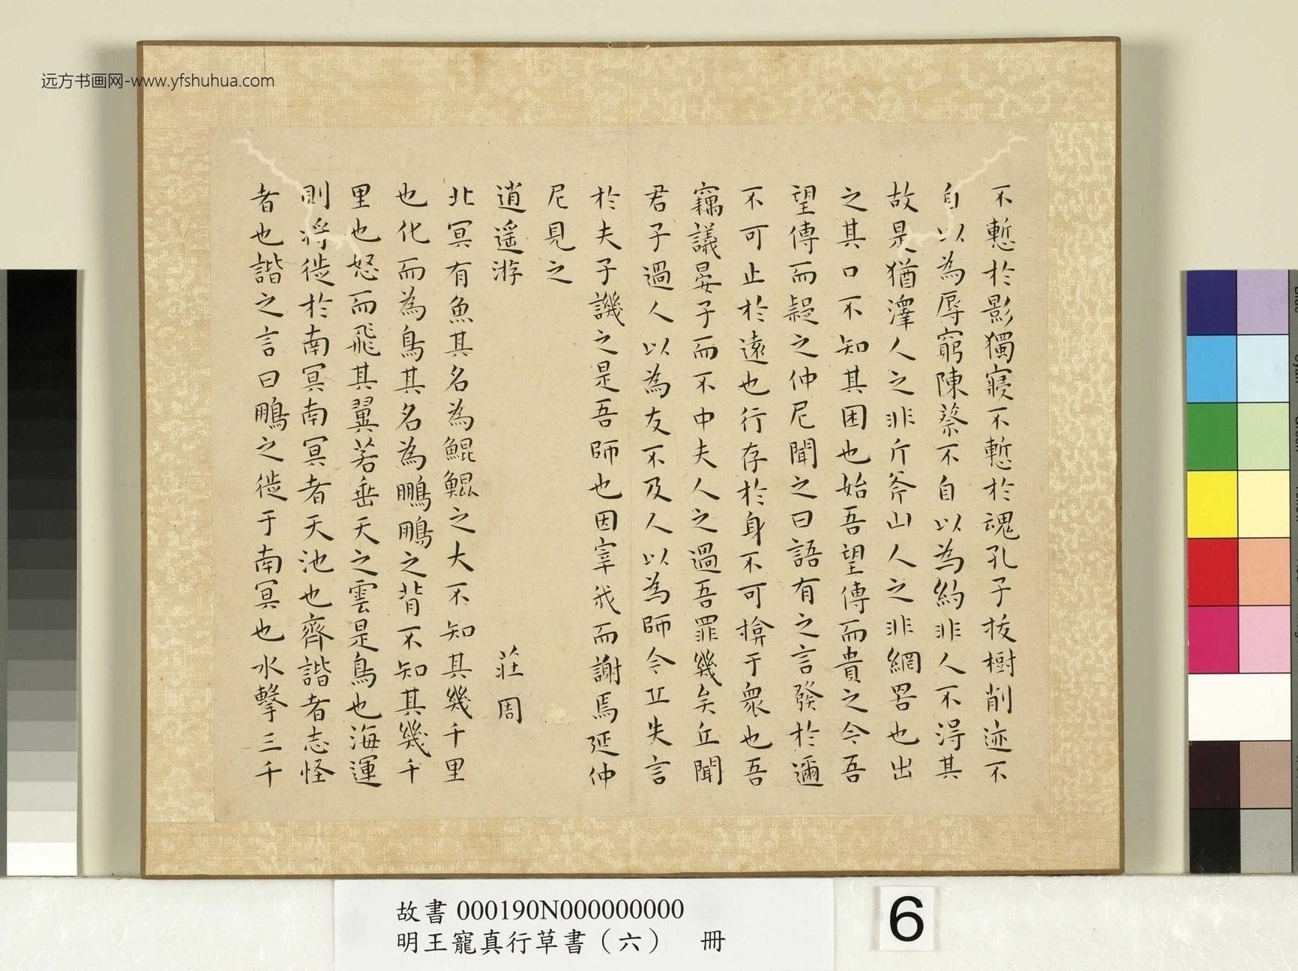 远方书画网-www.yfshuhua.com
不慙於影獨寢不慙於魂孔子拔樹削迹不
自以為辱窮陳蔡不自以為約非人不得其
故是猶澤人之非斤斧山人之非網罟也出
之其口不知其困也始吾望傳而貴之今吾
望傳而疑之仲尼聞之曰語有之言發於邇
不可止於遠也行存於身不可揜于衆也吾
竊議晏子而不中夫人之過吾罪幾矣丘聞
君子過人以為友不及人以為師今丘失言
於夫子譏之是吾師也因宰我而謝焉延仲
尼見之
逍遥游 莊周
北冥有魚其名為鯤鯤之大不知其幾千里
也化而為鳥其名為鵬鵬之背不知其幾千
里也怒而飛其翼若垂天之雲是鳥也海運
則將徙於南冥南冥者天池也齊諧者志怪
者也諧之言曰鵬之徙于南冥也水擊三千
故書 000190N000000000
明王寵真行草書（六） 冊
6